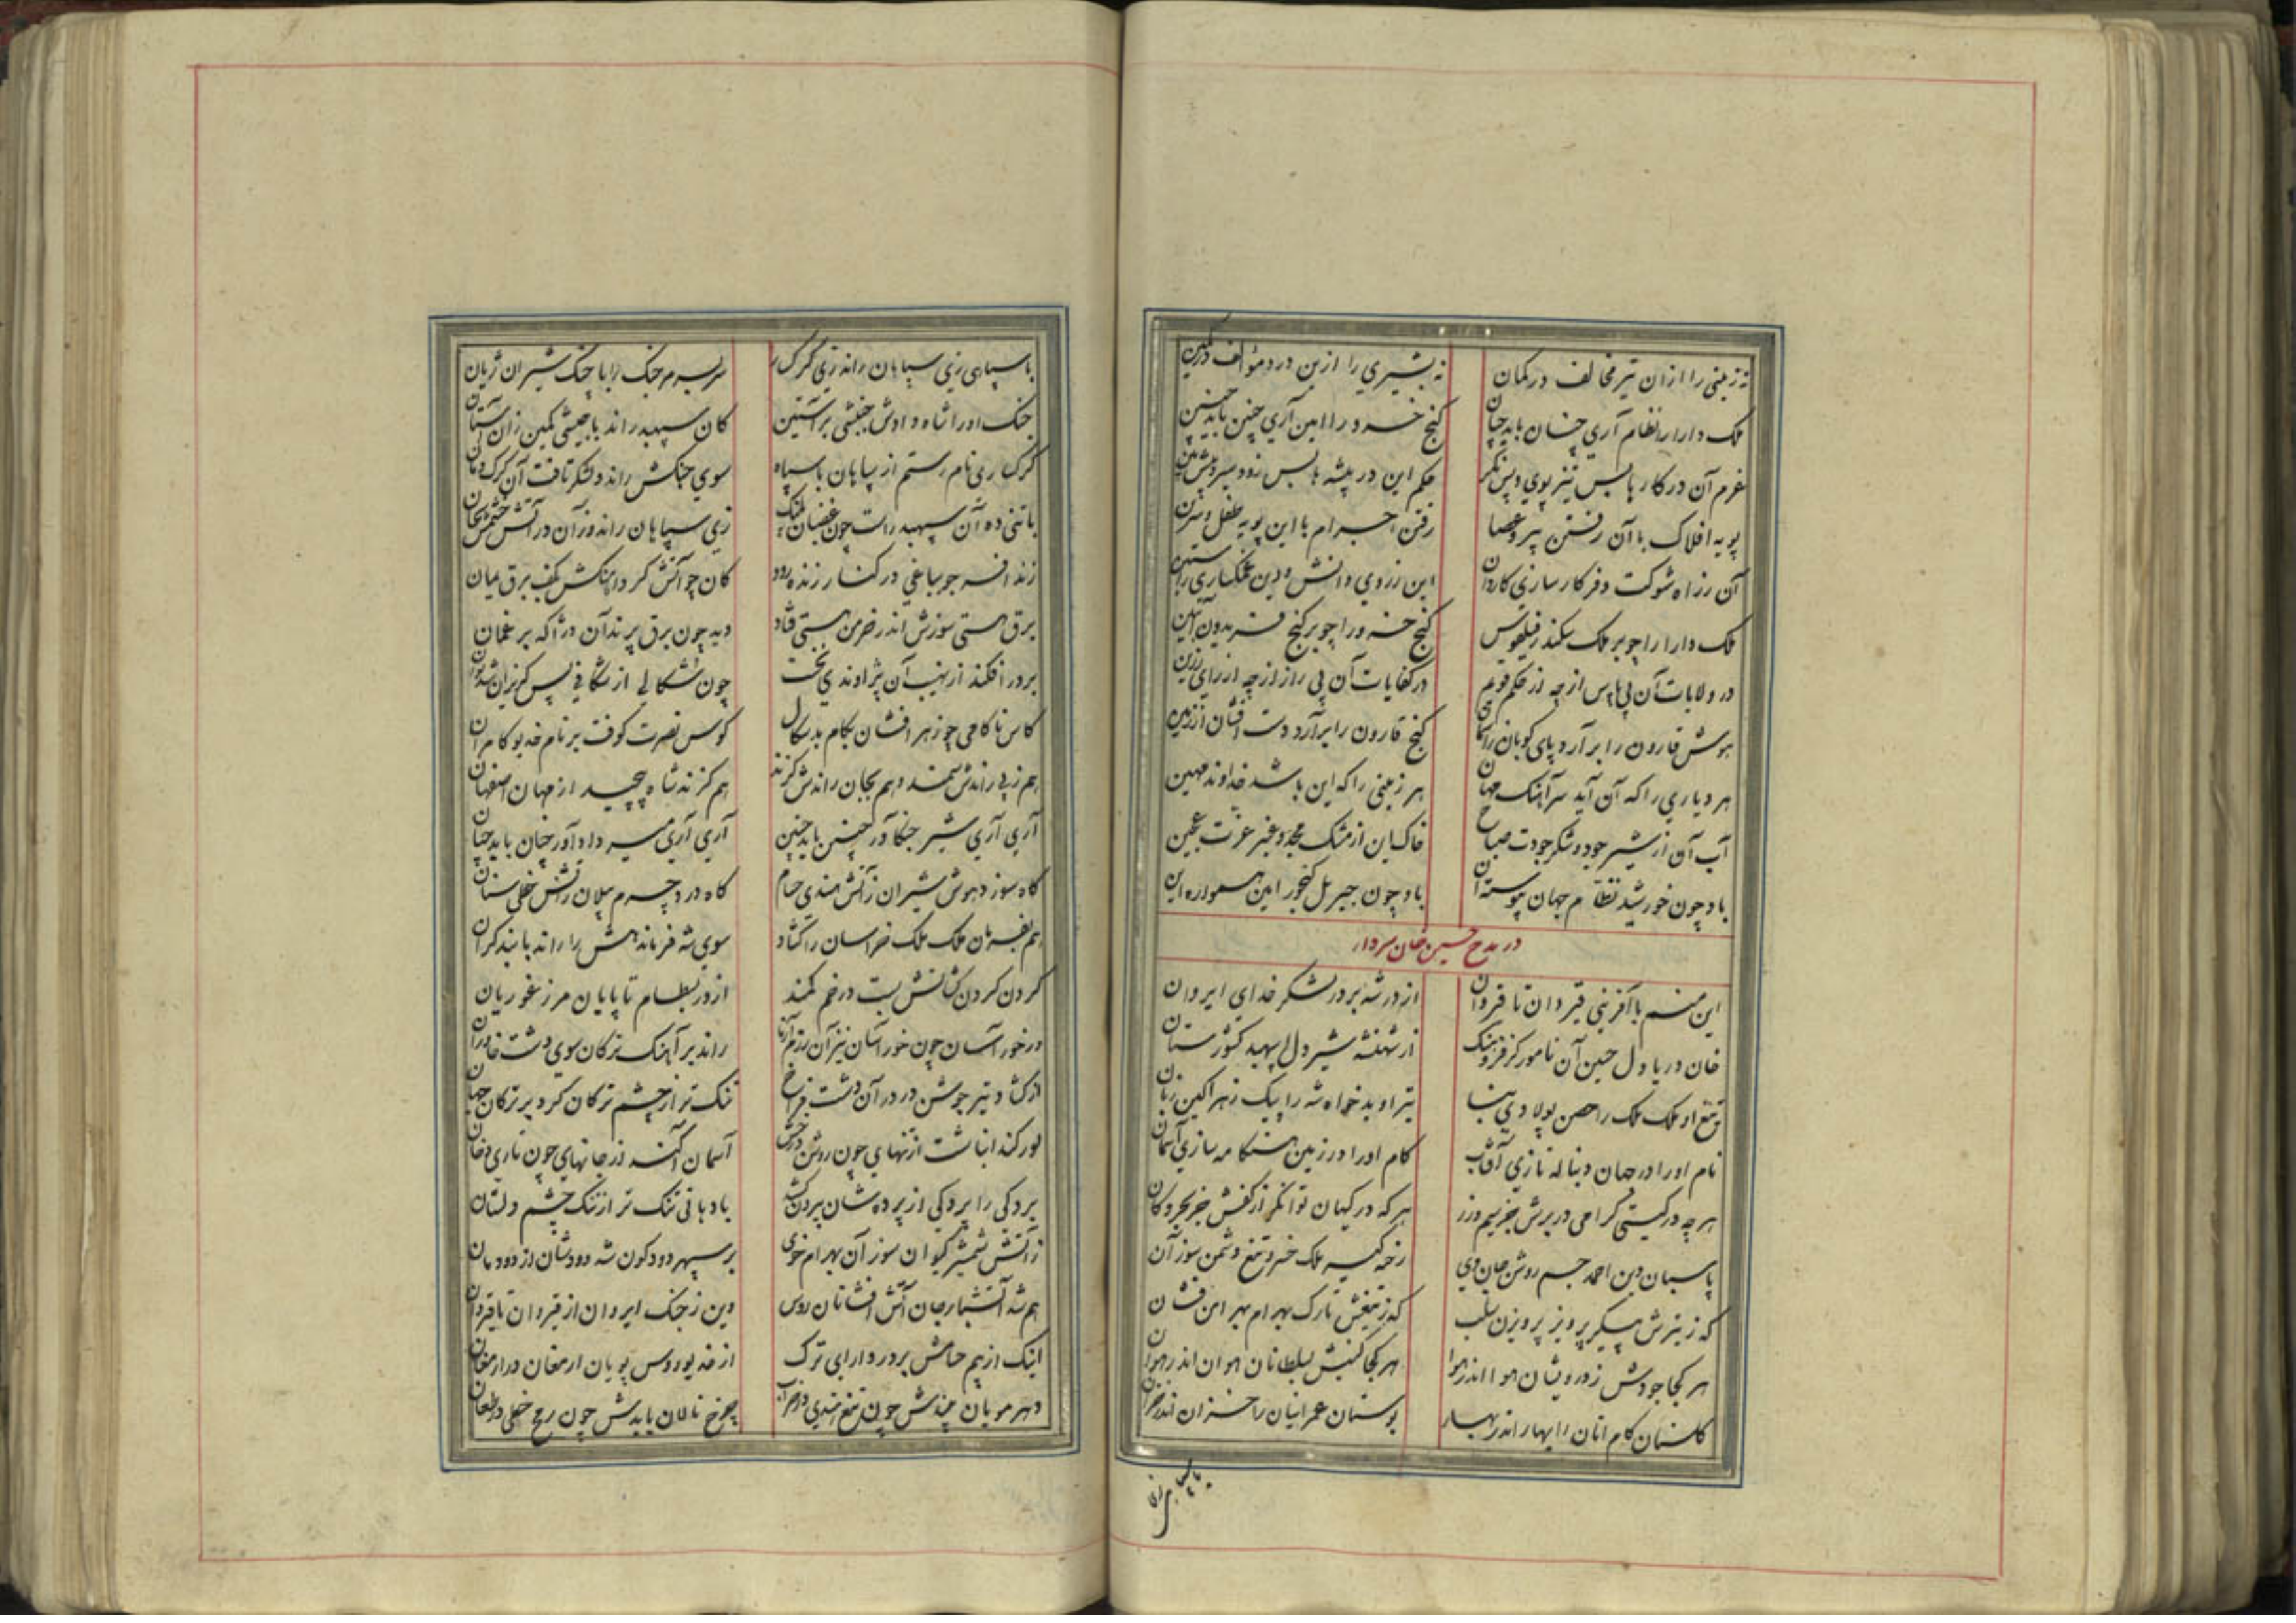 نه زمینی را از ان تیر مخالف در کمان نه بشیری را ازین در دمؤالف در کمین
ملک دارا را نظام آری چنان باید چنان گنج خسرو را امین آری چنین باید چنین
عزم آن در کارها بس تیز پوی و پس نگر حکم این در پیشه ها بس زود سیر و پیش بین
پویه افلاک با آن رفتن پیر و عصا رفتن اجرام با این پویه طفل و سرین
آن ز راه شوکت و فر کار سازی کاردان این ز روی دانش و دین غمگساری راستین
ملک دارا را چو بر ملک سکندر فیلقوس گنج خسرو را چو بر گنج فریدون آبتین
در ولایات آن پی پاس از چه از حکم قویم در کفایات آن پی راز از چه از رای رزین
هوش قارون را بر آرد پای کوبان ز اسمان گنج قارون را بر آرد دست افشان از زمین
هر دیاری را که آن آید سر آهنک جهان هر زمینی را که این باشد خداوند مهین
آب آن از شیر جود و شکر جودت صباح خاک این از مشک مجد و عنبر عزت عجین
باد چون خورشید نظام جهان پیوسته آن باد چون جبریل گنجور امین همواره این
در مدح حسین خان سردار
این منم با آفرینی قیروان تا قیروان از در شه بر در لشکر خدای ایروان
خان دریا دل حسین آن نامور کز فر و هنک از شهنشه شیر دل اسپهبد کشور ستان
تیغ او ملک ملک را حصن پولادی بنا تیر او بدخواه شه را پیک زهر آکین زبان
نام او را در جهان دنباله تازی آفتاب کام او را در زمین هنگامه سازی آسمان
هر چه در گیتی گرامی در برش جز سیم و زر هر که در کیهان توانگر از کفش جز بحر و کان
پاسبان دین احمد جسم روشن جان وی رخنه گیر ملک خسرو تیغ دشمن سوز آن
که ز تیرش پیکر پرویز پرویزن سلب که ز تیغش تارک بهرام بهرامن فشان
هر کجا جودش ز درویشان هوا اندر هوا هر کجا کینش بسلطانان هوان اندر هوان
گلستان کام آنان را بهار اندر بهار بوستان عمر اینان را خزان اندر خزان
با سپاهی زی
با سپاهی زی سپاهان راند زی گرگ سر بسر مر جنک را با چنک شیران ژیان
جنک او را شاه دادش جنبشی بر آستین کان سپهبد راند با جیشی کمین ز آن آستان
گرگساری نام رستم از سپاهان با سپاه سوی جنکش راند و لشکر تافت آن گرک دمان
با تنی ده آن سپهبد راست چون غضبان پلنک زی سپاهان راند و ز آن در آتش خشمش
زنده افسر جو بباغی در کنار زنده رود کان چو آتش کرد آهنکش بکف برق یمان
برق هستی سوزش اندر خرمن هستی فتاد دید چون برق پرند آن اژدها که بر غمان
بر در افکند از نهیب آن پژاوندی که تخت چون شکالی از شکافی پس گریزان شد نوان
کاس ناکامی چو زهر افشان بکام بدسکال کوس نصرت کوفت بر نام خدیو کامران
هم ز پی راندش سمند و هم بجان راندش گزند هم گزند شاه پیچید از مهان اصفهان
آری آری شیر جنگ آور چنین باید چنین آری آری میر داد آور چنان باید چنان
گاه سوزد هوش شیران ز آتش هندی حسام گاه درد چرم پیلان ز آتش خطی سنان
هم بفرمان ملک ملک خراسان را گشاد سوی شه فرماندهش را راند با بند گران
گردن گردن کشانش بست در خم کمند از در بسطام تا پایان مرز غوریان
در خور آسان چون خوراسان نیز آن رزم آزما راند بر آهنک ترکان سوی دشت خاوران
از گشاد تیر جوشن در در آن دشت فراخ تنک تر از چشم ترکان کرد بر ترکان جهان
گور کند انباشت از تنهای چون روشن درخش آسمان آکند از جانهای چون تاری دخان
بردگی را پردگی از پرده شان بیرون کشد با دهانی تنک تر از تنک چشم دلستان
ز آتش شمشیر کیوان سوز آن بهرام خوی بر سپهر دودگون شد دودشان از دودمان
هم شد آتشبار جان آتش افشانان روس وین ز جنک ایروان از قیروان تا قیروان
اینک از بیم حسامش بر در دارای ترک از خدیو روس پویان ارمغان در ارمغان
دهر مویان بیندش چون تیغ هندی در ضراب چرخ نالان یابدش چون رمح خطی در طعان